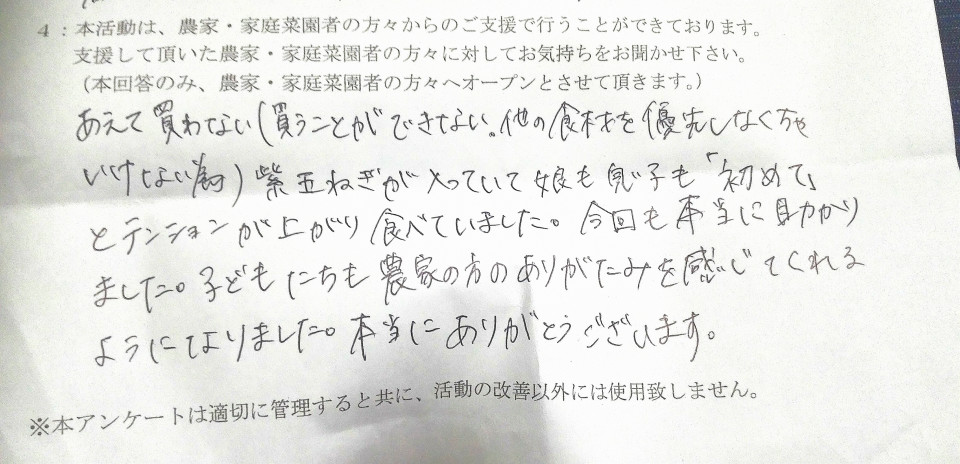 4：本活動は、農家・家庭菜園者の方々からのご支援で行うことができております。
支援して頂いた農家・家庭菜園者の方々に対してお気持ちをお聞かせ下さい。
（本回答のみ、農家・家庭菜園者の方々へオープンとさせて頂きます。）
あえて買わない(買うことができない。他の食材を優先しなくちゃ
いけない為)紫玉ねぎが入っていて娘も息子も「初めて」
とテンションが上がり食べていました。今回も本当に助かり
ました。子どもたちも農家の方のありがたみを感じてくれる
ようになりました。本当にありがとうございます。
※本アンケートは適切に管理すると共に、活動の改善以外には使用致しません。